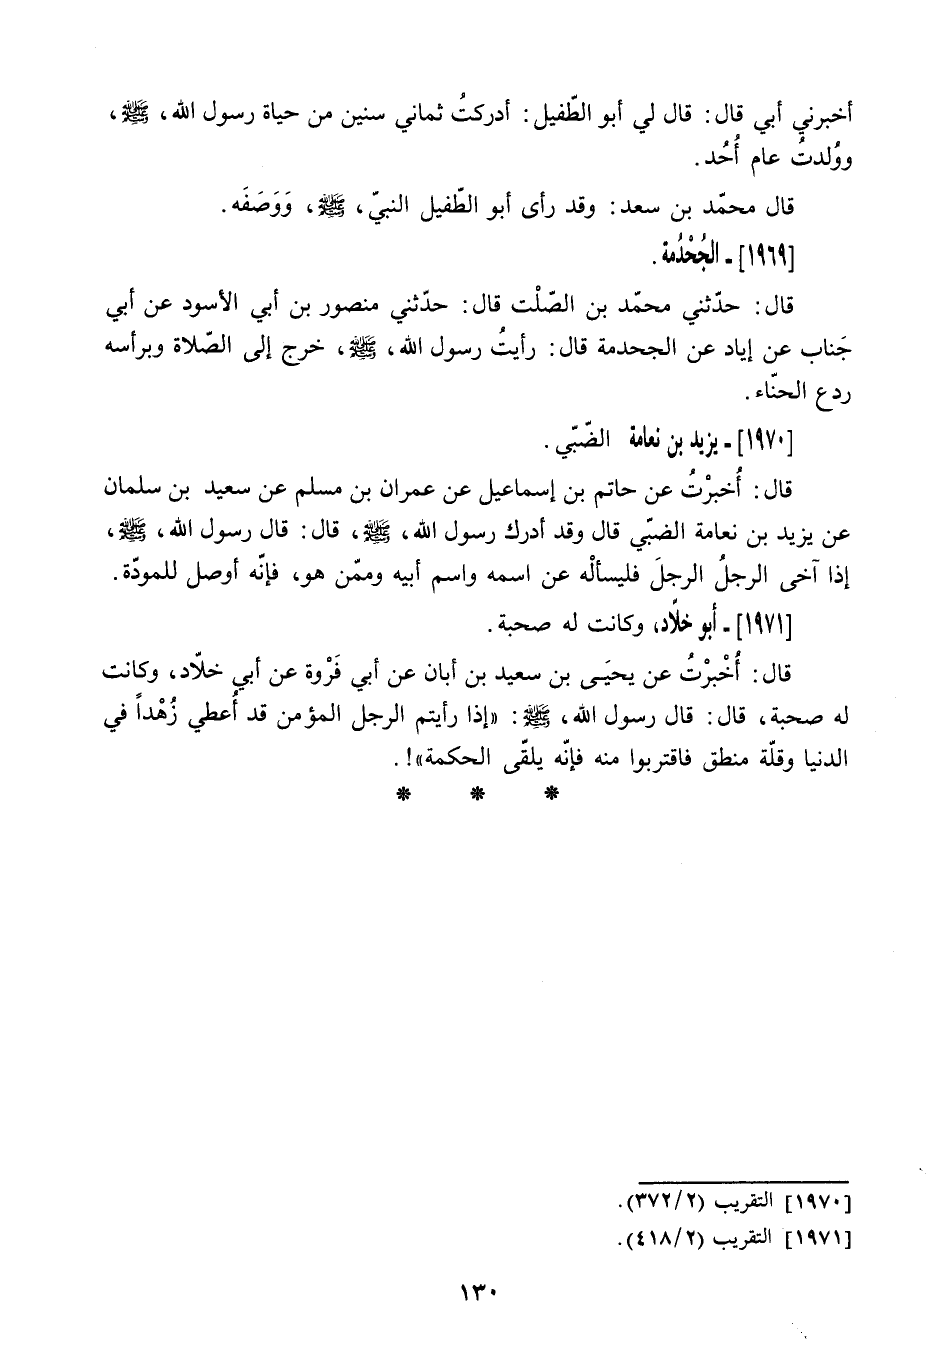 أخبرني أبي قال: قال لي أبو الطّفيل: أدركتُ ثماني سنين من حياة رسول الله، ﷺ،
ووُلدتُ عام أُحُد.
قال محمّد بن سعد: وقد رأى أبو الطّفيل النبيّ، ﷺ، وَوَصَفَه.
[١٩٦٩] ـ الجُحْدُمة.
قال: حدّثني محمّد بن الصّلْت قال: حدّثني منصور بن أبي الأسود عن أبي
جَناب عن إياد عن الجحدمة قال: رأيتُ رسول الله، ﷺ، خرج إلى الصّلاة وبرأسه
ردع الحنّاء.
[١٩٧٠] ـ يزيد بن نعامة الضّبّي.
قال: أُخبرْتُ عن حاتم بن إسماعيل عن عمران بن مسلم عن سعيد بن سلمان
عن يزيد بن نعامة الضبّي قال وقد أدرك رسول الله، ﷺ، قال: قال رسول الله، ﷺ،
إذا آخى الرجلُ الرجلَ فليسألْه عن اسمه واسم أبيه وممّن هو، فإنّه أوصل للمودّة.
[١٩٧١] ـ أبو خلاّد، وكانت له صحبة.
قال: أُخْبرْتُ عن يحيَـى بن سعيد بن أبان عن أبي فَرْوة عن أبي خلاّد، وكانت
له صحبة، قال: قال رسول الله، ﷺ: «إذا رأيتم الرجل المؤمن قد أُعطي زُهْداً في
الدنيا وقلّة منطق فاقتربوا منه فإنّه يلقّى الحكمة»!.
* * *
[١٩٧٠] التقريب (٣٧٢/٢).
[١٩٧١] التقريب (٤١٨/٢).
١٣٠